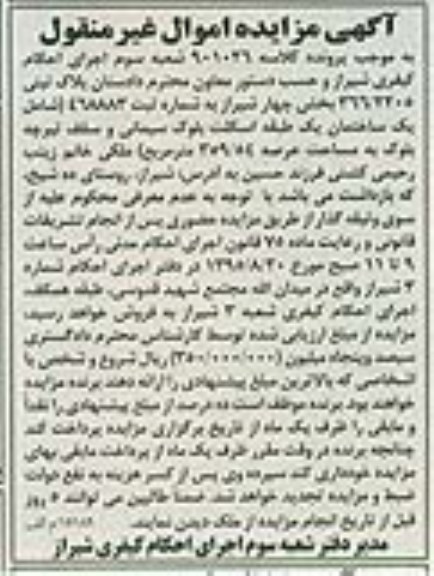 آگهی مزایده اموال غیر منقول
به موجب پرونده کلاسه ۹۰۱۰۲۶ شعبه سوم اجرای احکام
کیفری شیراز و حسب دستور معاون محترم دادستان پلاک ثبتی
بخش چهار شیراز به شماره ثبت ۴۶۸۸۸۳ (شامل
یک ساختمان یک طبقه اسکلت بلوک سیمانی و سقف تیرچه
بلوک به مساحت عرصه ۳۵۹/۵۴ مترمربع) ملکی خانم زینب
رحیمی کشنی فرزند حسین به آدرس: شیراز، روستای ده شیخ،
که بازداشت می باشد با توجه به عدم معرفی محکوم علیه از
سوی وثیقه گذار از طریق مزایده حضوری پس از انجام تشریفات
قانونی و رعایت ماده ۷۵ قانون اجرای احکام مدنی رأس ساعت
۹ تا ۱۱ صبح مورخ ۱۳۹۵/۸/۳۰ در دفتر اجرای احکام شماره
۳ شیراز واقع در میدان الله مجتمع شهید قدوسی، طبقه همکف،
اجرای احکام کیفری شعبه ۳ شیراز به فروش خواهد رسید،
مزایده از مبلغ ارزیابی شده توسط کارشناس محترم دادگستری
سیصد وپنجاه میلیون (۳۵۰/۰۰۰/۰۰۰) ریال شروع و شخص یا
اشخاصی که بالاترین مبلغ پیشنهادی را ارائه دهند برنده مزایده
خواهند بود. برنده موظف است ده درصد از مبلغ پیشنهادی را نقداً
و مابقی را ظرف یک ماه از تاریخ برگزاری مزایده پرداخت کند
چنانچه برنده در وقت مقرر ظرف یک ماه از پرداخت مابقی بهای
مزایده خودداری کند سپرده وی پس از کسر هزینه به نفع دولت
ضبط و مزایده تجدید خواهد شد. ضمناً طالبین می توانند ۵ روز
قبل از تاریخ انجام مزایده از ملک دیدن نمایند.
مدیر دفتر شعبه سوم اجرای احکام کیفری شیراز